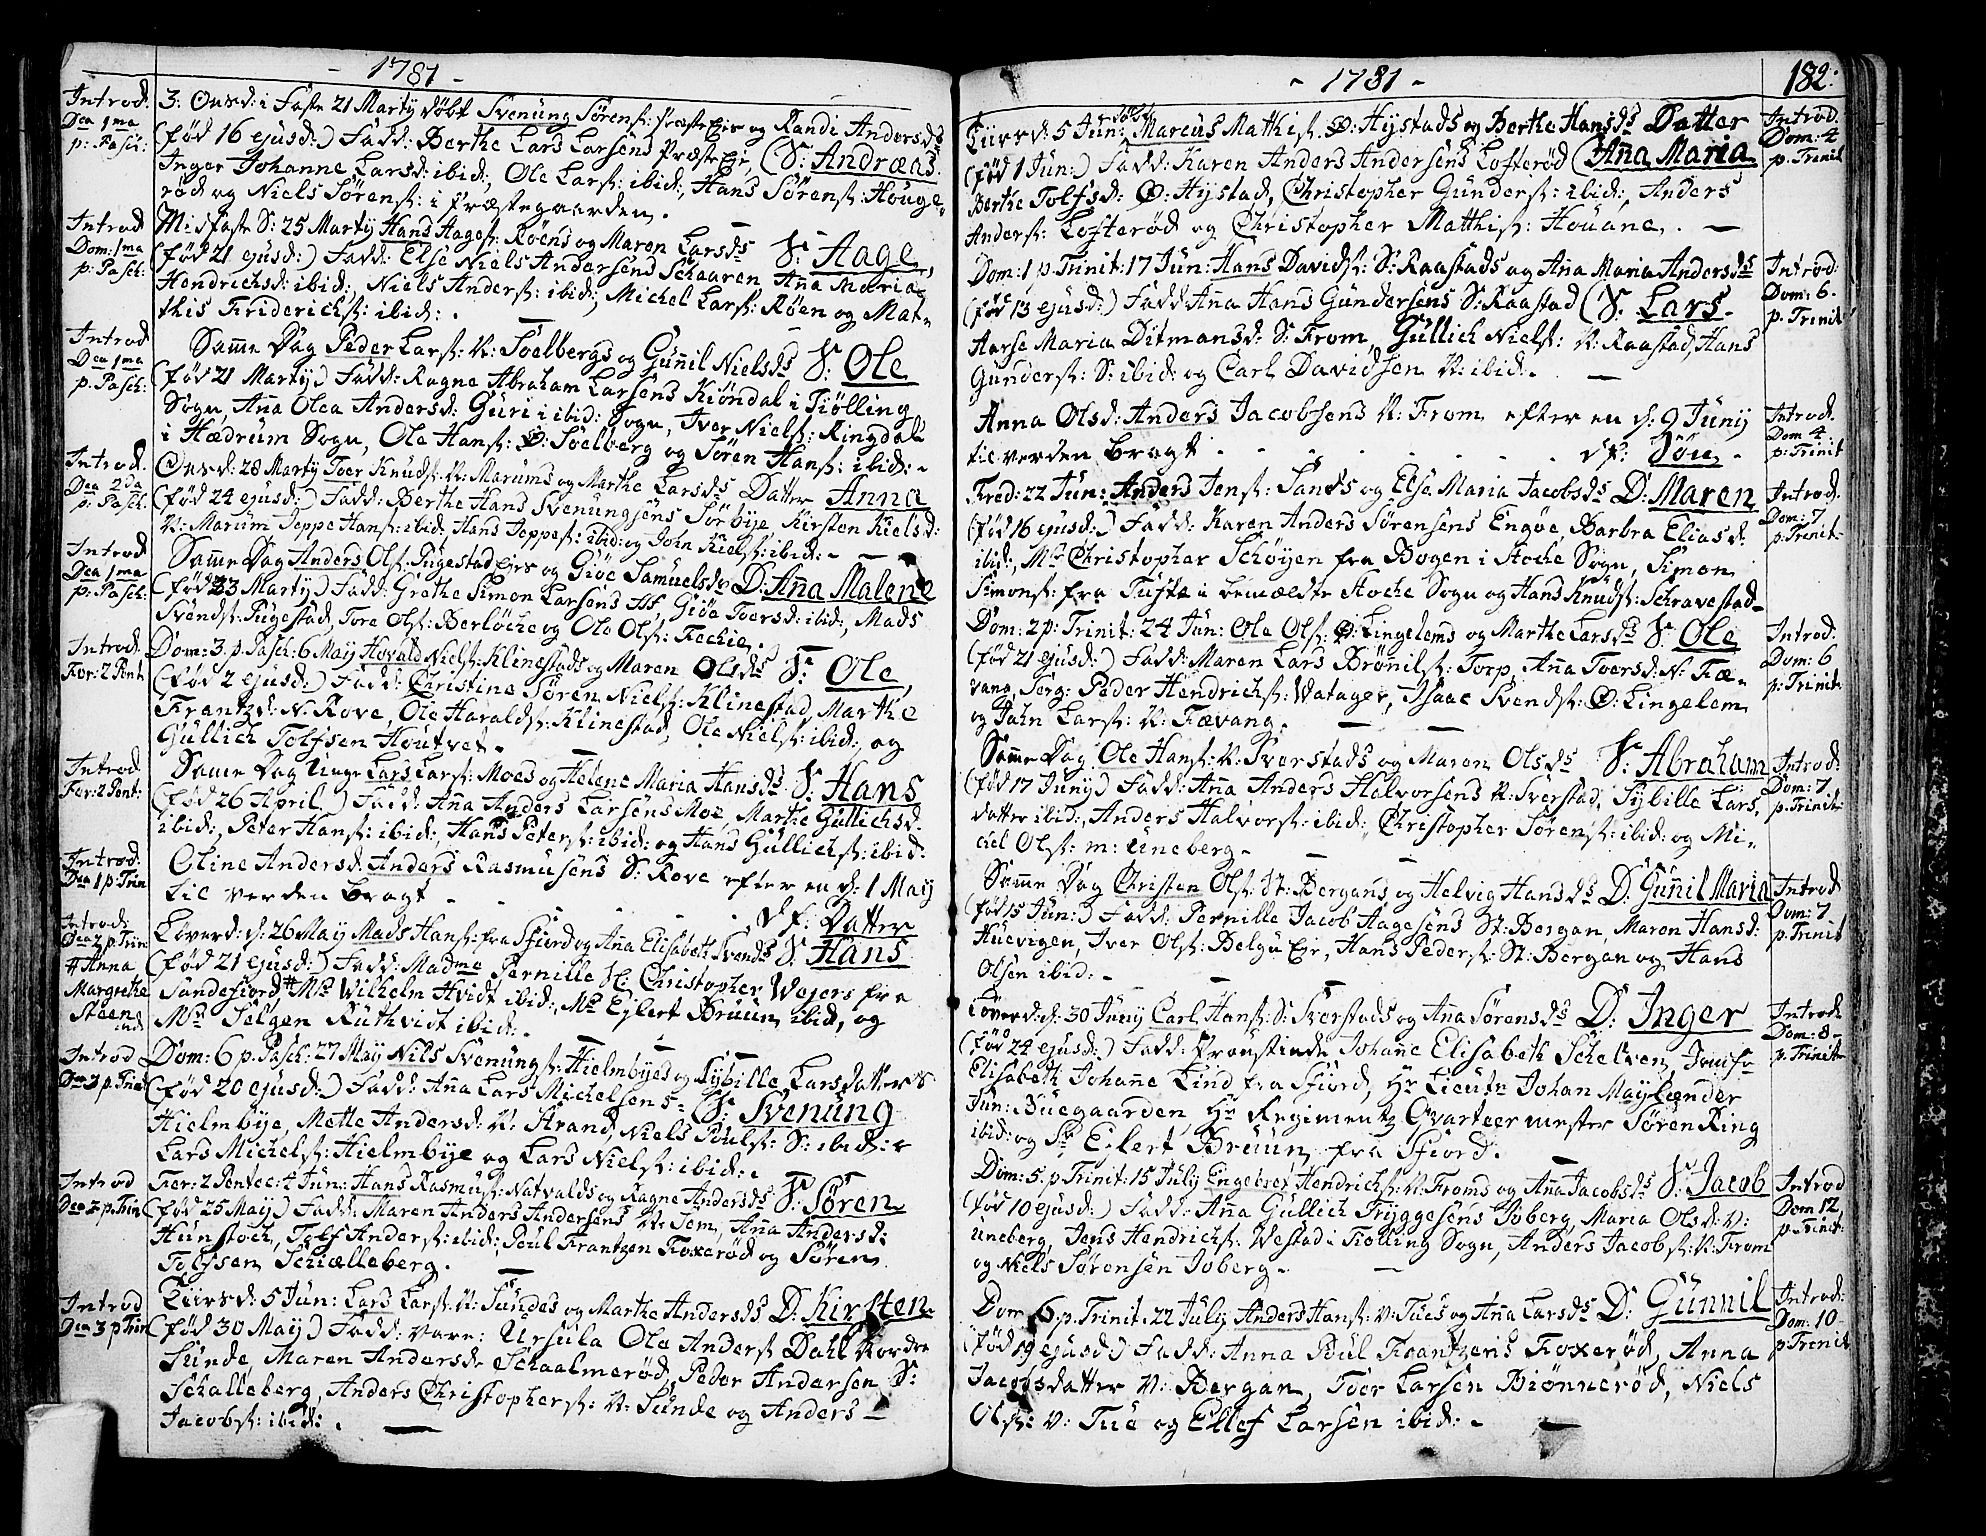 - 1781 -
Introd.
Dca 1ma
p: Pasch:
3. Onsd: i Faste 21 Martij døbt Svenung Sørens: Præste Eie og Randi Andersds
(fød 16 ejusd:) Fadd: Berthe Lars Larsens Præste Eje, (S: Andræas.
Inger Johanne Larsd: ibid:, Ole Lars: ibid:, Hans Sørens: Houge-
rød og Niels Sørens: i Præstegaarden.
Introd
Dom: 1ma
p: Pasch:
Midfaste S: 25 Martij Hans Aages: Røens og Maren Larsds S: Aage,
(fød 21 ejusd:) Fadd: Else Niels Andersens Schaaren, Anna Maria
Hendrichsd: ibid:, Niels Anders: ibid:, Michel Lars: Røen og Mat-
this Friderichs: ibid:.
Introd
Dca 1ma
p: Pasch:
Samme Dag Peder Lars: N: Soelbergs og Gunnil Nielsds S: Ole
(fød 21 Martij) Fadd: Ragne Abraham Larsens Kiøndal i Tiølling
Sogn, Anna Olea Andersd: Guri i ibid: Sogn, Iver Niels: Ringdal
i Hædrum Sogn, Ole Hans: Ø: Soelberg og Søren Hans: ibid:
Introd.
Dca 2da
p: Pasch.
Onsd: 28 Martij Toer Knuds: N: Marums og Marthe Larsds Datter Anna
(fød 24 ejusd:) Fadd: Berthe Hans Svenungsens Sørbye, Kirsten Kielsd:
N: Marum, Jeppe Hans: ibid: Hans Jeppes: ibid: og John Kiels: ibid:
Introd
Dca 1ma
p: Pasch:
Samme Dag Anders Ols: Fugestad Ejes og Giøe Samuelsdr D: Anna Malene
(fød 23 Martij) Fadd: Grethe Simon Larsens, Giøa Toersd: ibid:, Mads
Svends: Fugestad, Tore Ols: Berløche og Ole Ols: Fechie.
Introd.
For: 2 Pent
Dom: 3. p. Pasch: 6 May Hovald Niels: Klinestads og Maren Olsds S: Ole,
(fød 2 ejusd:) Fadd: Christine Søren Niels: Klinestad, Marthe
Frantzd: N: Rove, Ole Haralds: Klinestad, Ole Niels: ibid:, og
Gullich Tolfsen Houtvet.
Introd
Fer: 2 Pent:
Samme Dag Unge Lars Lars: Moes og Helene Maria Hansds S: Hans
(fød 26 April) Fadd: Anna Anders Larsens Moe, Marthe Gullichsd:
ibid:, Peter Hans: ibid:, Hans Peters: ibid: og Hans Gullichs: ibid:
Introd:
Dca 1 p: Trin
Oline Andersd: Anders Rasmusens S: Rove efter en d: 1 May
til verden bragt - - - - - - df: Datter
Introd:
Dca 2 p: Trin
# Anna
Margrethe
Steen
ind
Løverd: d: 26 May Mads Hans: fra Sfiord og Anna Elisabeth Svends S: Hans
(fød 21 ejusd:) Fadd: Madme Pernille Hr Christopher Wejers fra
Sandefiord, # Mr Wilhelm Hvidt ibid:, Mr Ejlert Bruun ibid, og
Mr Selgen Ruthvidt ibid:
Introd
Dca 3 p: Trin
Dom: 6 p. Pasch: 27 May Nils Svenungs: Hielmbyes og Sybille Larsdatters
(fød 20 ejusd:) Fadd: Anna Lars Michelsens (S: Svenung
Hielmbye, Mette Andersd: N: Strand, Niels Pouls: S: ibid:
Lars Michels: Hielmbye og Lars Niels: ibid:.
Introd
Dca 2 p: Trin
Fer: 2 Pentec: 4 Jun: Hans Rasmus: Natvalds og Ragne Andersds S: Søren
(fød 25 May) Fadd: Maren Anders Andersens N: Tem, Anna Andersd:
Hunstoch, Tolf Anders: ibid:, Poul Frantzen Foxerød og Søren
Tolfsen Schiælleberg.
Introd
Dca 3 p Trin
Tiirsd: 5 Jun: Lars Lars: N: Sundes og Marthe Andersds D: Kirsten
(fød 30 May) Fadd: vare: Ursula Ole Anders: Dahl Nordre
Sunde, Maren Andersdr Schaalmerød, Peder Andersen S:
Schalleberg, Anders Christophers: N: Sunde og Anders
Jacobs: ibid:.
- 1781 -
182:
Tiirsd: 5 Jun: døbt Marcus Mathis: Ø: Hystads og Berthe Hansds Datter
(fød 1 Jun:) Fadd: Karen Anders Andersens Lofterød (Anna Maria
Berthe Tolfsd: Ø: Hystad, Christopher Gunders: ibid:, Anders
Anders: Lofterød og Christopher Matthis: Houane. -
Introd.
Dom: 4
p: Trinit
Dom: 1 p. Trinit: 17 Jun: Hans Davids: S: Raastads og Anna Maria Andersds
(fød 13 ejusd:) Fadd Anna Hans Gundersens S: Raastad (S: Lars
Aarse Maria Ditmansd: S: From, Gullich Niels: N: Raastad, Hans
Gunders: S: ibid: og Carl Davidsen N: ibid:.
Introd:
Dom: 6.
p: Trinit
Anna Olsd: Anders Jacobsens N: From efter en d: 9 Junij
til verden bragt - - - - - - df: Søn.
Introd.
Dom 4
p: Trinit
Fred: 22 Jun: Anders Jens: Sands og Else Maria Jacobsds D: Maren
(fød 16 ejusd:) Fadd: Karen Anders Sørensens Engøe, Barbra Eliasd:
ibid:, Mr Christopher Schøyen fra Bogen i Hoche Sogn, Simon
Simons: fra Tufte i bemælte Hoche Sogn og Hans Knuds: Schravestad
Introd:
Dom: 7
p: Trinit
Dom: 2 p: Trinit: 24 Jun: Ole Ols: Ø: Lingelems og Marthe Larsds S: Ole
(fød 21 ejusd:) Fadd: Maren Lars Brønils: Torp, Anna Toersd: N: Fæ-
vang, Serg: Peder Hendrichs: Watager, Isaac Svends: Ø: Lingelem
og John Lars: N: Fævang.
Introd.
Dom: 6
p: Trinit
Samme Dag Ole Hans: N: Sverstads og Maren Olsds S: Abraham
(fød 17 Junij) Fadd: Anna Anders Halvorsens N: Sverstad, Sybille Lars
datter ibid:, Anders Halvors: ibid:, Christopher Sørens: ibid: og Mi-
chel Ols: m: Uneberg.
Introd:
Dom: 7
p: Trinit
Samme Dag Christen Ols: St: Bergans og Helvig Hansds D: Gunnil Maria
(fød 15 Jun:) Fadd: Pernille Jacob Hagesens St: Bergan, Maren Hansd:
Huevigen, Iver Ols: Belgu Eje, Hans Peders: St: Bergan og Hans
Olsen ibid:
Introd
Dom: 7
p: Trinit
Løverd: d: 30 Junij Carl Hans: S: Sverstads og Ana Sørensds D: Inger
(fød 24 ejusd:) Fadd: Proustinde Johanne Elisabeth Schelven, Jomfr
Elisabeth Johanne Lind fra Sfiord, Hr Lieutn Johan Maylænder
Jun: Buegaarden, Hr Regimentz Qvarteermester Søren Ring
ibid: og Sr Ejlert Bruun fra Sfiord.
Introd.
Dom: 8
p: Trinit
Dom: 5. p: Trinit: 15 July Engebret Hendrichs: N: Froms og Anna Jacobsds S: Jacob
(fød 10 ejusd:) Fadd: Anna Gullich Tryggesens Joberg, Maria Olsd: N:
Uneberg, Jens Hendrichs: Westad i Tiølling Sogn, Anders Jacobs: N: From
og Niels Sørensen Joberg.
Introd
Dom 12
p: Trinit:
Dom 6 p: Trinit: 22 July Anders Hans: N: Tues og Anna Larsds D: Gunnil
(fød 19 ejusd:) Fadd: Anna Poul Frantzens Foxerød, Anna
Jacobsdatter N: Bergan, Toer Larsen Biønnerød, Niels
Ols: N: Tue og Ellef Larsen ibid:
Introd:
Dom: 10
p Trinit